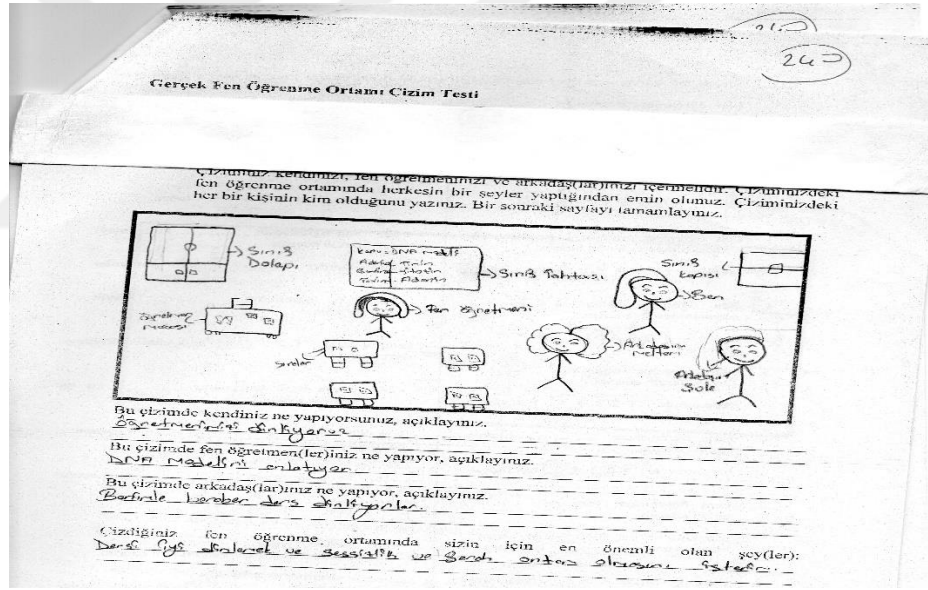 240
Gerçek Fen Öğrenme Ortamı Çizim Testi
Çiziminiz kendinizi, fen öğretmeninizi ve arkadaş(lar)ınızı içermelidir. Çiziminizdeki
fen öğrenme ortamında herkesin bir şeyler yaptığından emin olunuz. Çiziminizdeki
her bir kişinin kim olduğunu yazınız. Bir sonraki sayfayı tamamlayınız.
Sınıf
Dolapı
Konu: DNA modeli
Sınıf Tahtası
Sınıf
kapısı
Ben
Fen öğretmeni
öğretmen
masası
Sıralar
Arkadaşım
Meltem
Şule
Bu çizimde kendiniz ne yapıyorsunuz, açıklayınız.
Öğretmenimizi dinliyoruz
Bu çizimde fen öğretmen(ler)iniz ne yapıyor, açıklayınız.
DNA Modelini anlatıyor
Bu çizimde arkadaş(lar)ınız ne yapıyor, açıklayınız.
beraber ders dinliyorlar.
Çizdiğiniz fen öğrenme ortamında sizin için en önemli olan şey(ler):
Dersi iyi dinlemek ve sessizlik ve olmasını isterim.